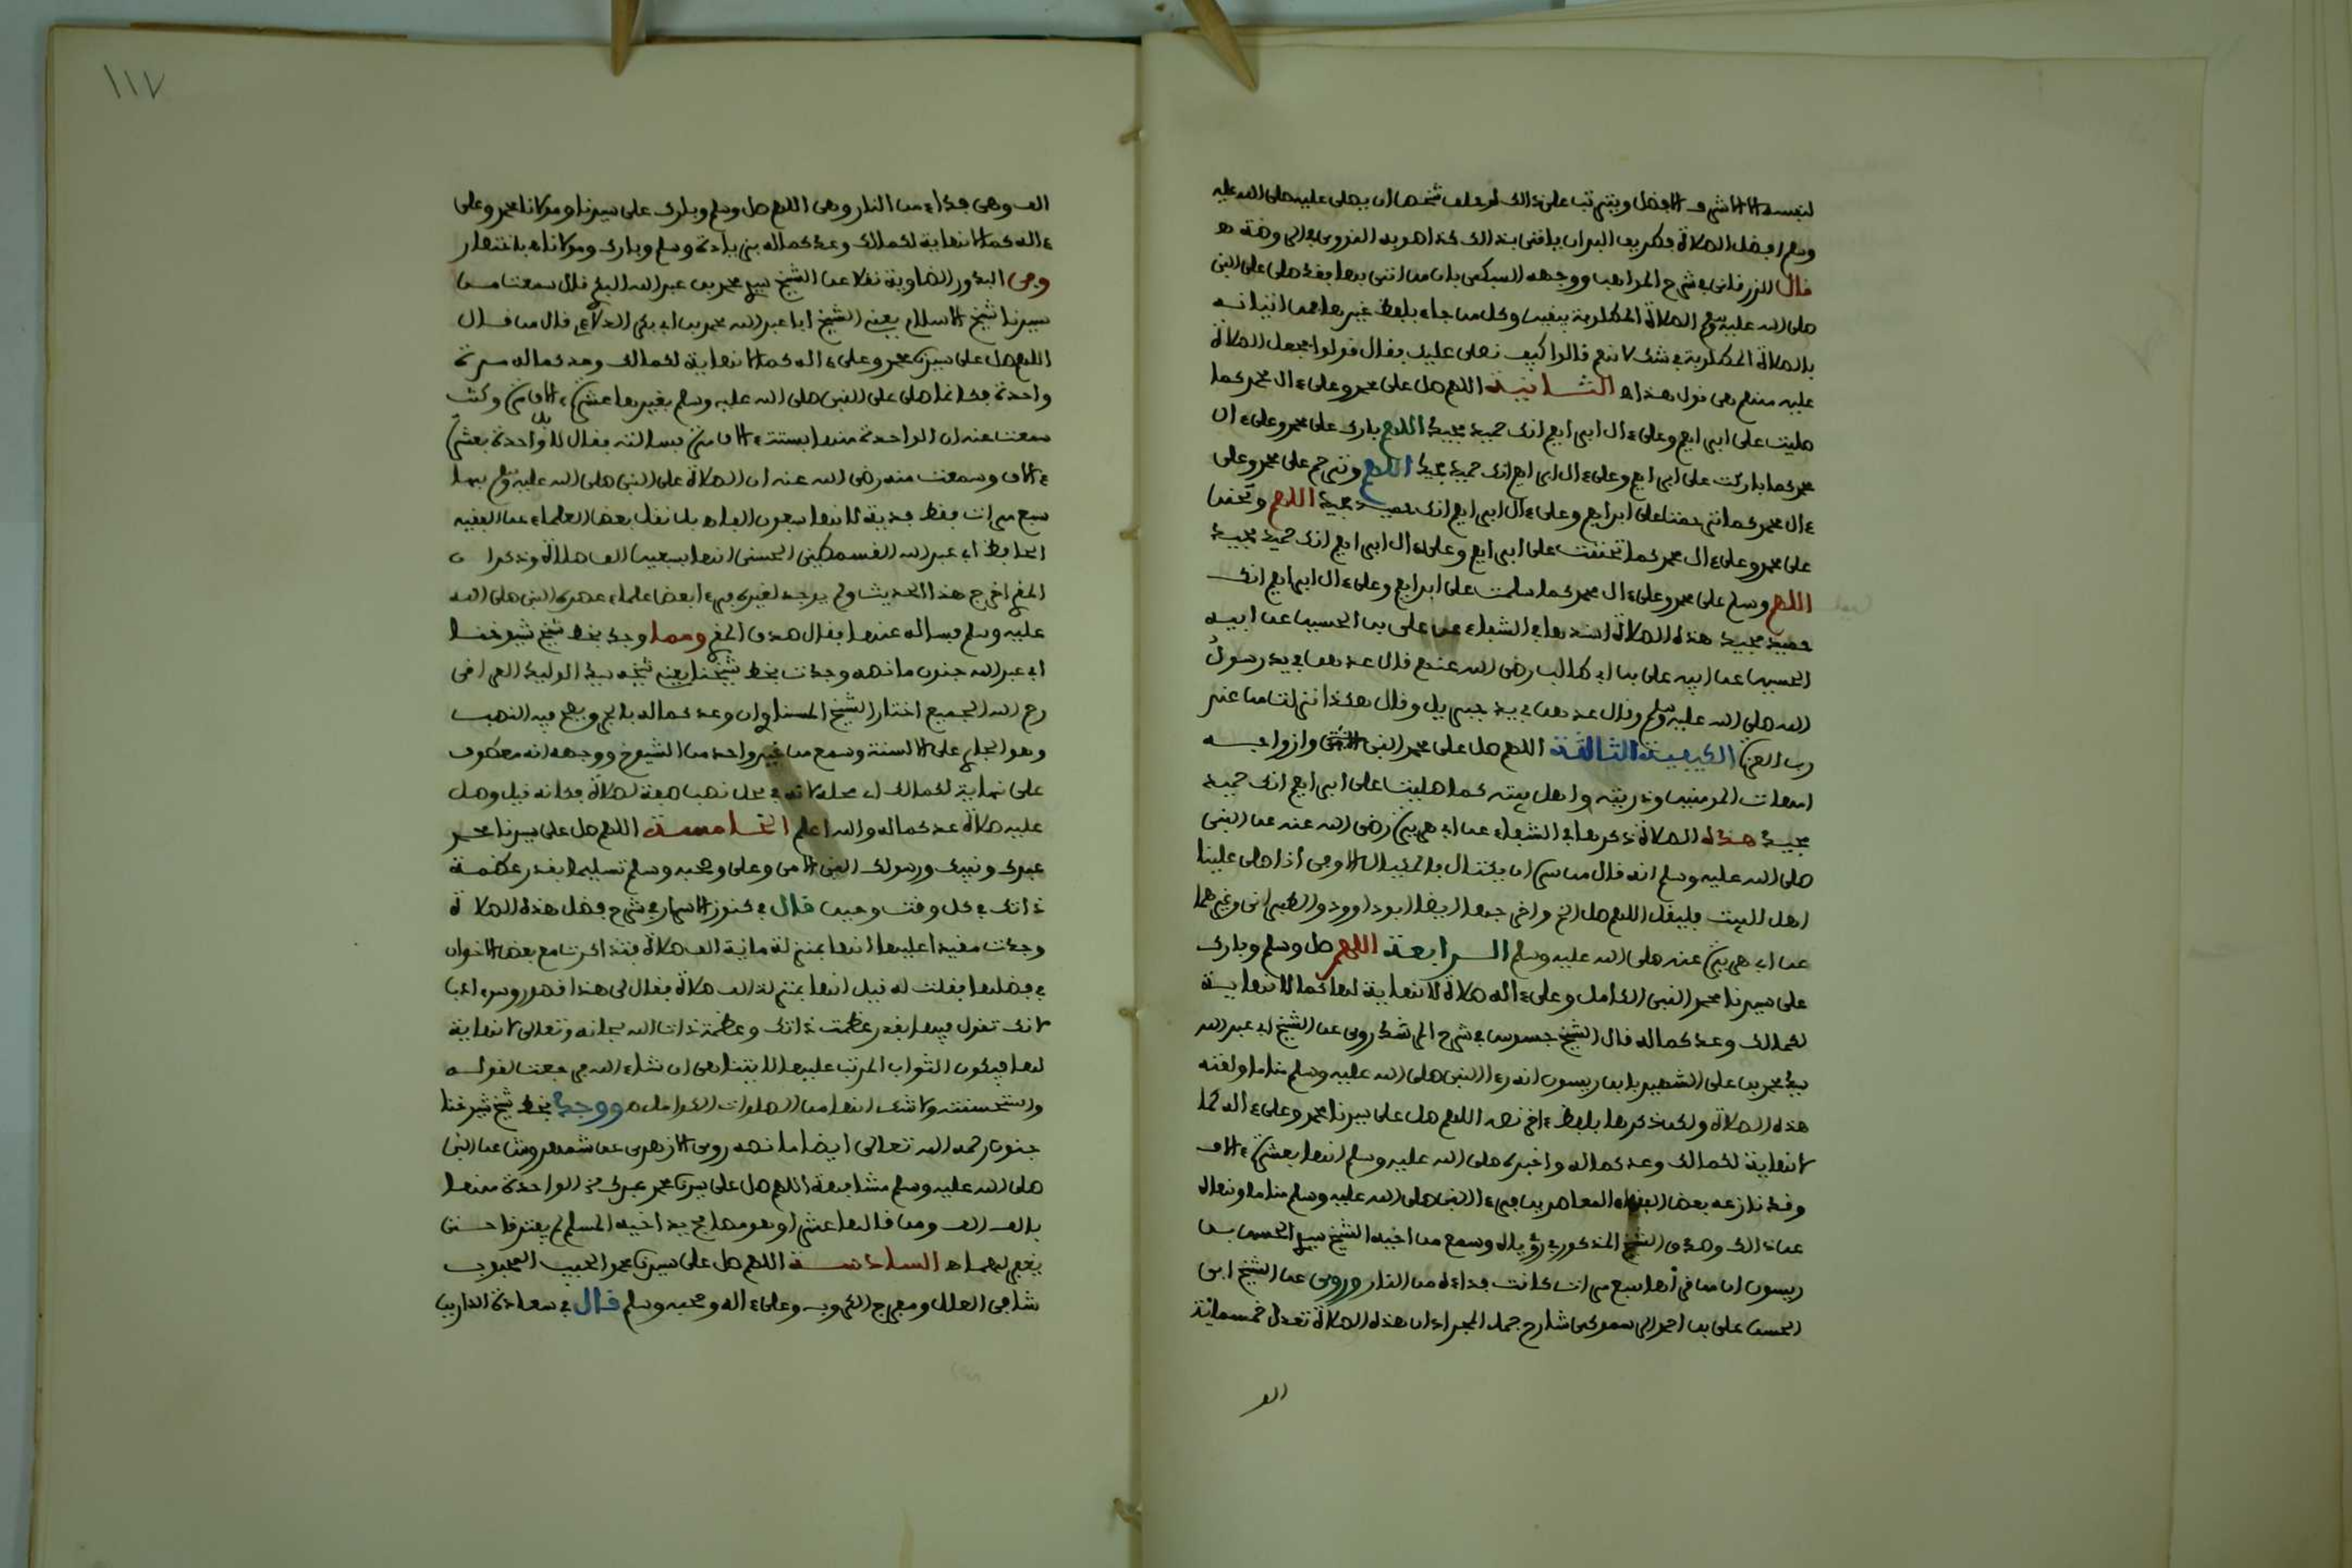 لنفسه إلا الأشرف الأفضل ويترتب على ذلك لو حلف شخص أن يصلي عليه صلى الله عليه
وسلم أفضل الصلاة فطريق البر أن يأتي بذلك هكذا صوبه النووي في الروضة اهـ
قال الزرقاني في شرح المواهب ووجهه السبكي بأن من أتى بها فقد صلى على النبي
صلى الله عليه وسلم الصلاة المطلوبة بيقين وكل من جاء بلفظ غيرها فهو من إتيانه
بالصلاة المطلوبة في شك لأنهم قالوا كيف نصلي عليك فقال قولوا فجعل الصلاة
عليه منهم هي قول هذا اهـ الثانية اللهم صل على محمد وعلى ءال محمد كما
صليت على ابراهيم وعلى ءال ابراهيم انك حميد مجيد اللهم بارك على محمد وعلى ءال
محمد كما باركت على ابراهيم وعلى ءال ابراهيم انك حميد مجيد اللهم وترحم على محمد وعلى
ءال محمد كما ترحمت على ابراهيم وعلى ءال ابراهيم انك حميد مجيد اللهم وتحنن
على محمد وعلى ءال محمد كما تحننت على ابراهيم وعلى ءال ابراهيم انك حميد مجيد
اللهم وسلم على محمد وعلى ءال محمد كما سلمت على ابراهيم وعلى ءال ابراهيم انك
حميد مجيد هذه الصلاة أسندها في الشفاء عن علي بن الحسين عن ابيه
الحسين عن ابيه علي بن ابي طالب رضي الله عنهم قال عدهن في يد رسول
الله صلى الله عليه وسلم وقال عدهن في يد جبريل وقال هكذا نزلت من عند
رب العزة الكيفية الثالثة اللهم صل على محمد النبي الأمي وازواجه
امهات المومنين وذريته واهل بيته كما صليت على ابراهيم انك حميد
مجيد هذه الصلاة ذكرها في الشفاء عن ابي هريرة رضي الله عنه عن النبي
صلى الله عليه وسلم انه قال من سره ان يكتال بالمكيال الاوفى اذا صلى علينا
اهل البيت فليقل اللهم صل الخ واخرجها ايضا ابو داوود والطبراني وغيرهما
عن ابي هريرة عنه صلى الله عليه وسلم الرابعة اللهم صل وسلم وبارك
على سيدنا محمد النبي الكامل وعلى ءاله صلاة لا نهاية لها كما لا نهاية
لكمالك وعد كماله قال الشيخ جسوس في شرح المرشد روي عن الشيخ ابي عبد الله
سيدي محمد بن علي الشهير بابن ريسون انه رءا النبي صلى الله عليه وسلم مناما ولقنه
هذه الصلاة ولكن ذكرها بلفظ ءاخر نصه اللهم صل على سيدنا محمد وعلى ءاله كما
لا نهاية لكمالك وعد كماله واخبره صلى الله عليه وسلم انها بعشرة ءالاف
وقد نازعه بعض الفقهاء المعاصرين فرءا النبي صلى الله عليه وسلم مناما ونهاه
عن ذلك وصدق الشيخ المذكور في رؤياه وسمع من اخيه الشيخ سيدي الحسن بن
ريسون ان من قرأها سبع مرات كانت فداءه من النار وروى عن الشيخ ابي
الحسن علي بن احمد المرسموكي شارح جمل المجراد ان هذه الصلاة تعدل خمسمائة
الف
١١٧
الف وهي فداء من النار وهي اللهم صل وسلم وبارك على سيدنا ومولانا محمد وعلى
ءاله كما لا نهاية لكمالك وعد كماله بزيادة وسلم وبارك ومولانا اهـ باختصار
وفي البدور الضاوية نقلا عن الشيخ سيدي محمد بن عبد الله البكري قال سمعت من
سيدنا شيخ الاسلام يعني الشيخ ابا عبد الله محمد بن ابي بكر الدلاءي قال من قال
اللهم صل على سيدنا محمد وعلى ءاله كما لا نهاية لكمالك وعد كماله مرة
واحدة فكانما صلى على النبي صلى الله عليه وسلم بغيرها عشرة ءالاف مرة وكنت
سمعت عنه ان الواحدة منها بستة ءالاف مرة فسالته فقال لا بل الواحدة بعشرة
ءالاف وسمعت منه رضي الله عنه ان الصلاة على النبي صلى الله عليه وسلم بها
سبع مرات فقط فدية لانها سبعون الفا هـ بل نقل بعض العلماء عن الفقيه
الحافظ ابي عبد الله القسمطيني الحسني انها بسبعين الف صلاة وذكر ان
المقري اخرج هذا الحديث ولم يوجد لغيره فرءا بعض علماء عصره النبي صلى الله
عليه وسلم فساله عنها فقال صدق المقري ومما وجد بخط شيخ شيوخنا
ابي عبد الله جنون ما نصه وجدت بخط شيخنا يعني شيخه سيدي الوليد العراقي
رحم الله الجميع اختار الشيخ المسناوي ان وعد كماله بالجر ويصح فيه النصب
وهو الجاري على الالسنة وسمع من غير واحد من الشيوخ ووجهه انه معطوف
على نهاية لكمالك اي محله لانه في محل نصب صفة لصلاة فكانه قيل وصل
عليه صلاة عد كماله والله اعلم الخامسة اللهم صل على سيدنا محمد
عبدك ونبيك ورسولك النبي الامي وعلى وصحبه وسلم تسليما بقدر عظمة
ذاتك في كل وقت وحين قال في كنوز الاسرار في شرح فضل هذه الصلاة
وجدت مقيدا عليها انها بمنزلة ماية الف صلاة فتذاكرت مع بعض الاخوان
في فضلها فقلت له قيل انها بمنزلة الف صلاة فقال لي هذا قصور وسوء ادب
لانك تقول فيها بقدر عظمة ذاتك وعظمة ذات الله سبحانه وتعالى لا نهاية
لها فيكون الثواب المرتب عليها لا يتناهى ان شاء الله فرجعت لقوله
واستحسنته ولا شك انها من الصلوات الكوامل هـ ووجد بخط شيخ شيوخنا
جنون رحمه الله تعالى ايضا ما نصه روى الازهري عن شمهروش عن النبي
صلى الله عليه وسلم مشافهة اللهم صل على سيدنا محمد عبدك الخ الواحدة منها
بالف الف ومن قالها عشرا وهو مصافح يد اخيه المسلم لم يفترقا حتى
يغفر لهما هـ السادسة اللهم صل على سيدنا محمد الحبيب المحبوب
شافي العلل ومفرج الكروب وعلى ءاله وصحبه وسلم قال في سعادة الدارين